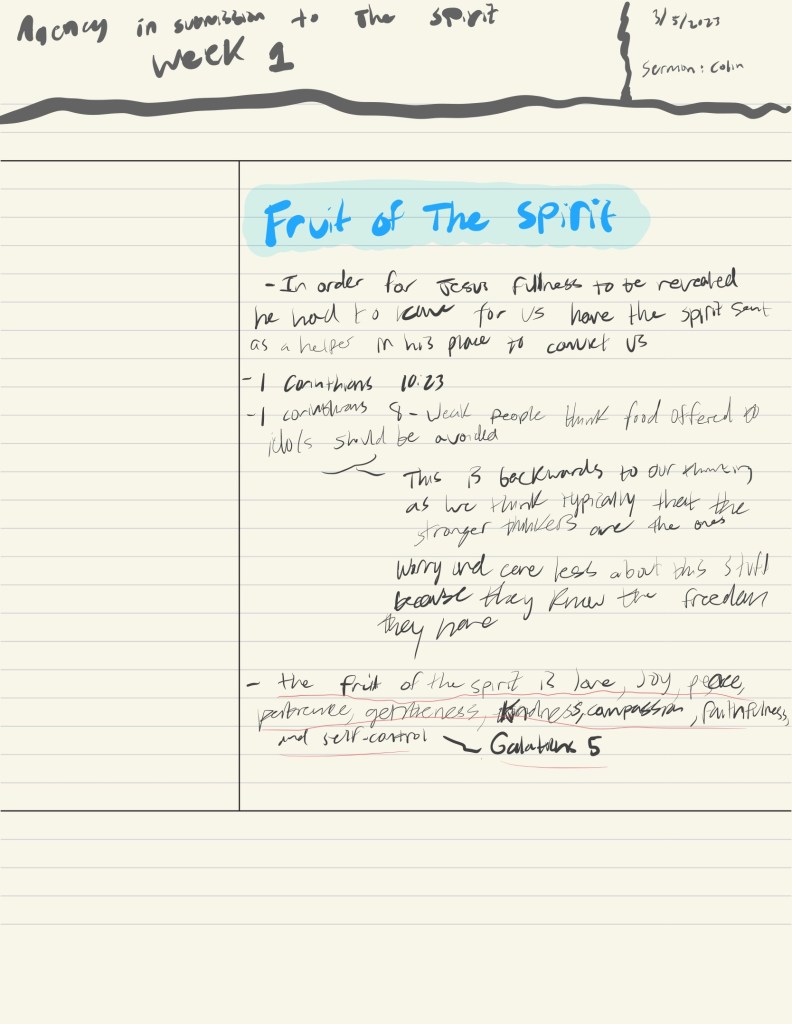 Agency in submission to The Spirit
Week 1
3/5/2023
Sermon: Colin
Fruit of The Spirit
- In order for Jesus fullness to be revealed
he had to leave for us have the spirit sent
as a helper in his place to convict us
- 1 Corinthians 10:23
- 1 corinthians 8 - weak people think food offered to
idols should be avoided
This is backwards to our thinking
as we think typically that the
stronger thinkers are the ones
Worry and care less about this stuff
because they know the freedom
they have
- the fruit of the spirit is love, Joy, peace,
kindness, compassion, faithfulness,
and self-control
Galatians 5